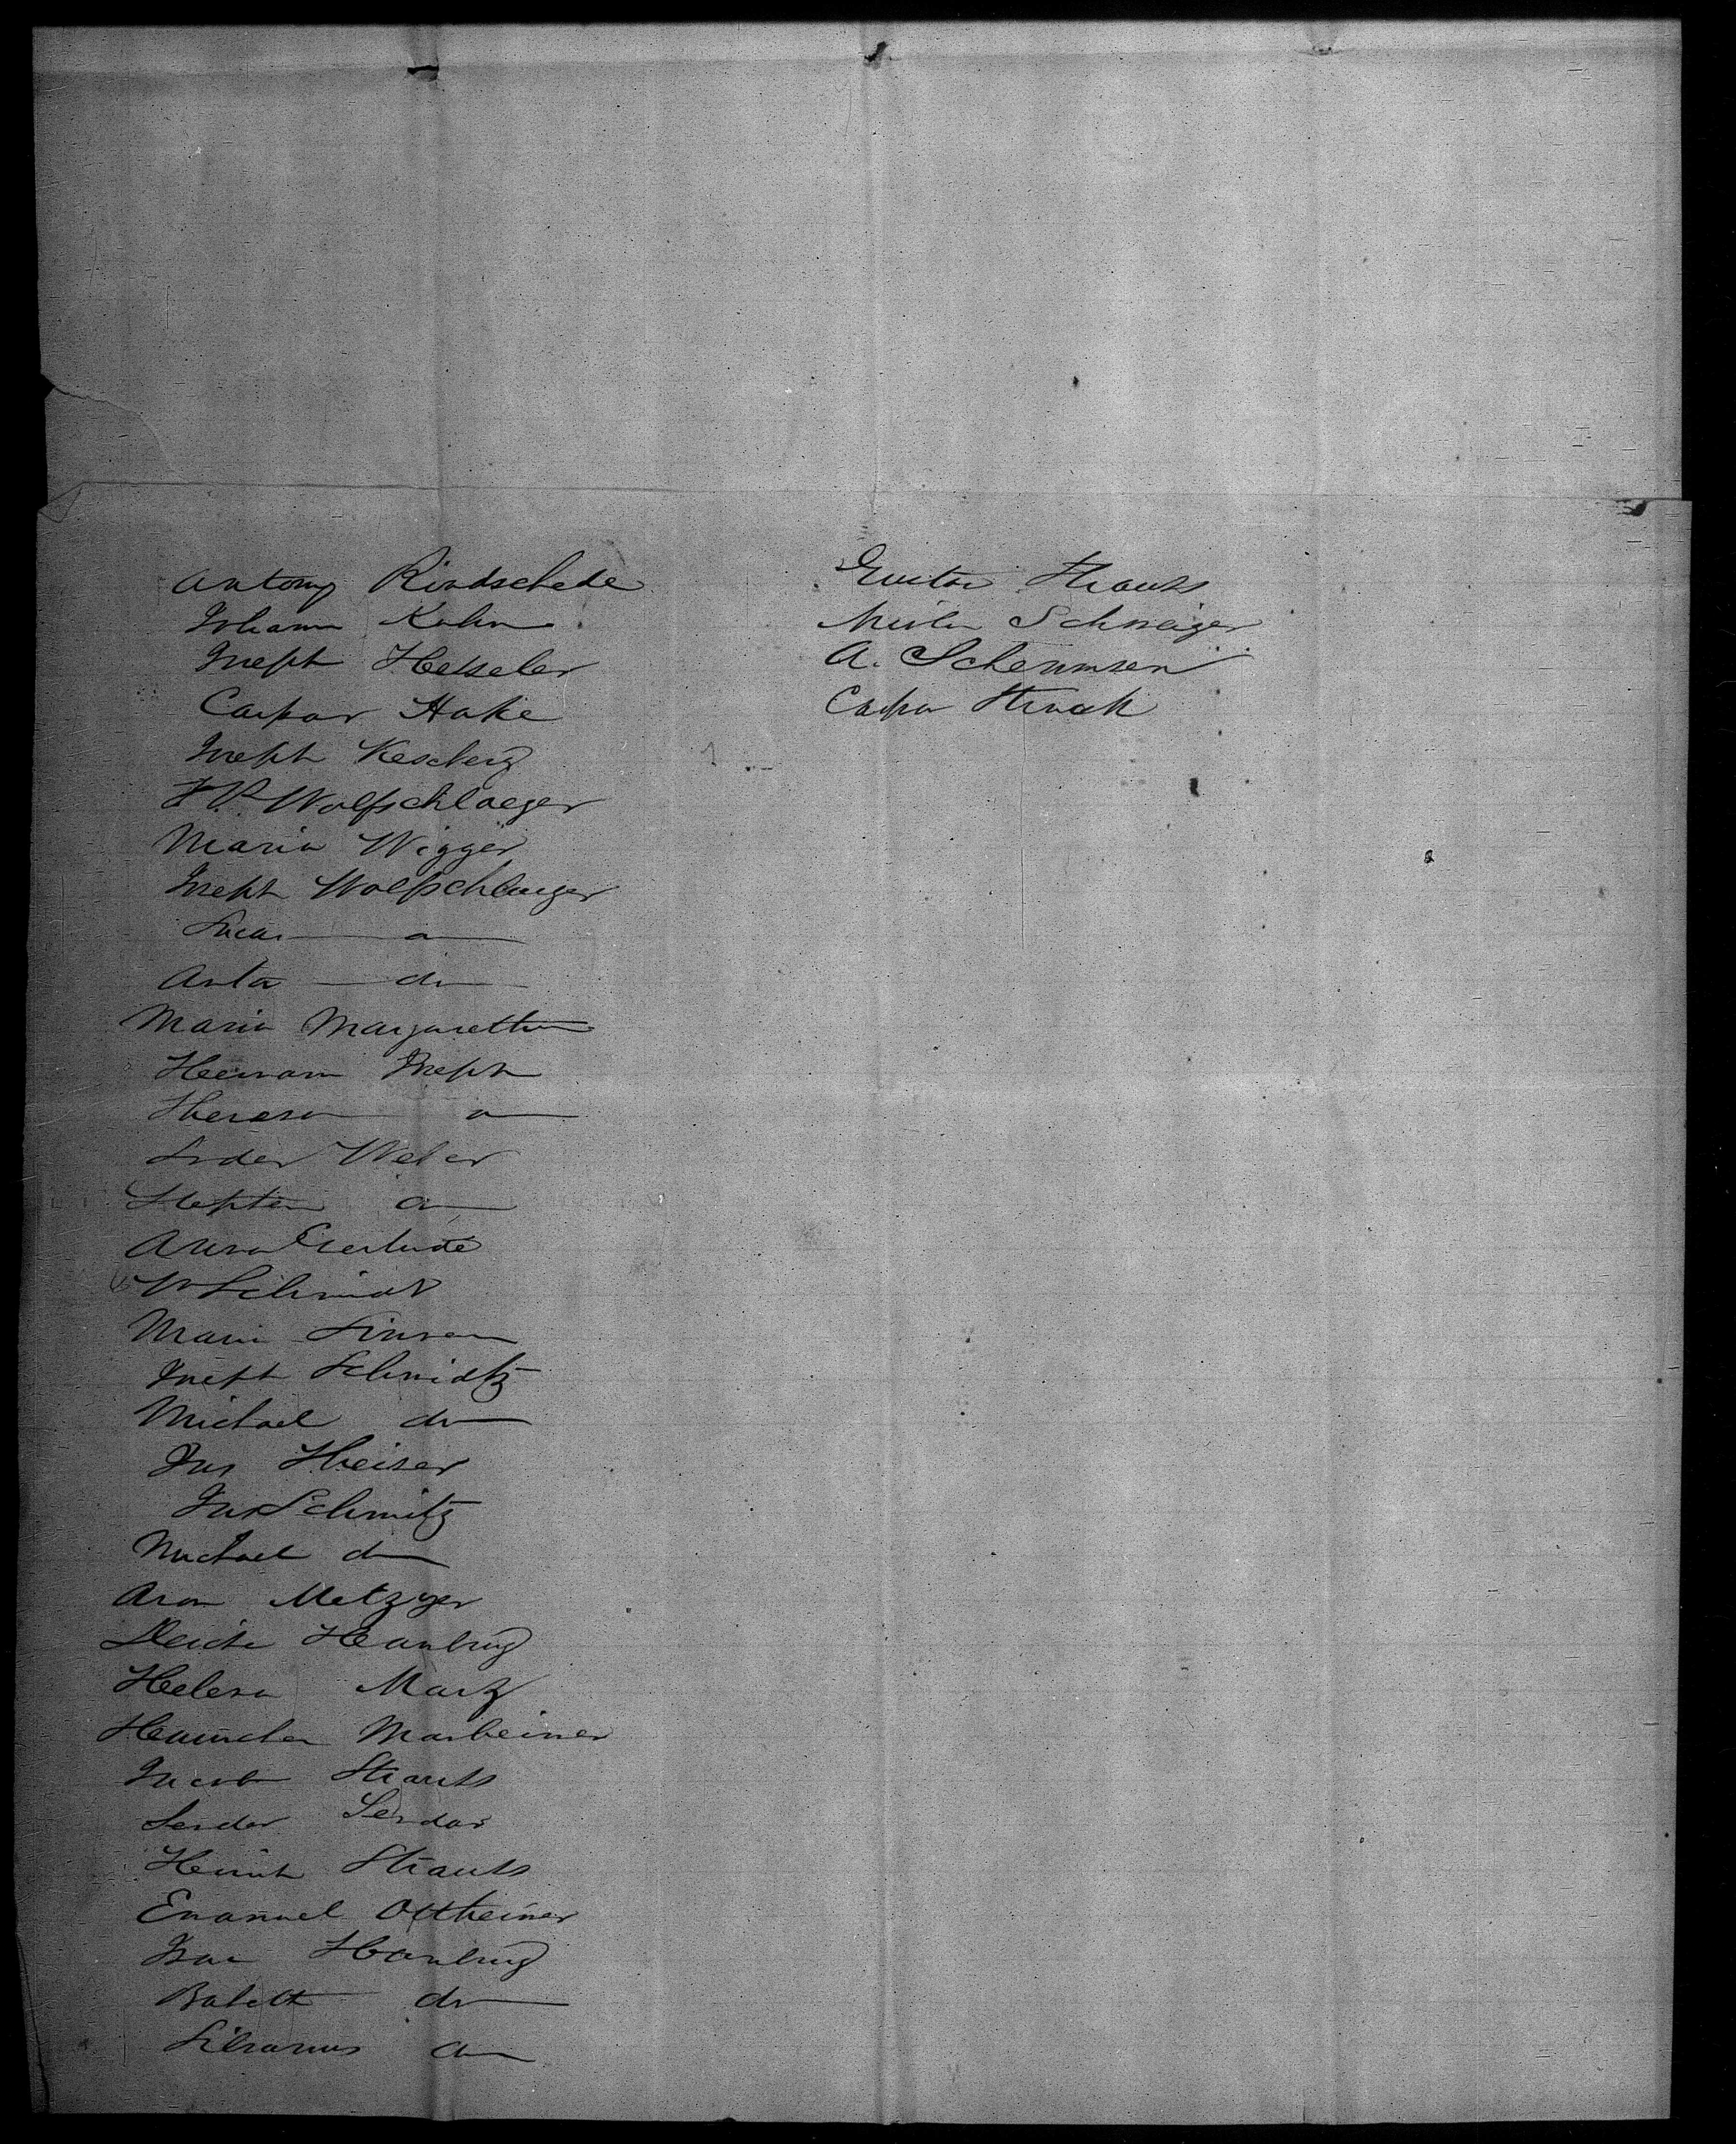 Antony Rindschede
Johann Kuhn
Joseph Hesseler
Caspar Hake
Joseph Kescberg
F. P. Wolfschlaeger
Maria Wigger
Joseph Wolfschlaeger
do
Anton do
Maria Margarettha
Hermann Joseph
Theresa do
Weber
Stephan do
Anna Gertrude
W Schmidt
Maria
Joseph Schmidtz
Michael do
Jos Heiser
Jos Schmitz
Michael do
Aron Metzger
Hamburg
Helena Marx
Marheimer
Jacob Strauss
Sender Sender
Heinrich Strauss
Emanuel Ottheimer
Isac Hamburg
Babett do
do
Gustav Strauss
Schweizer
A. Schemmsen
Caspar Struck